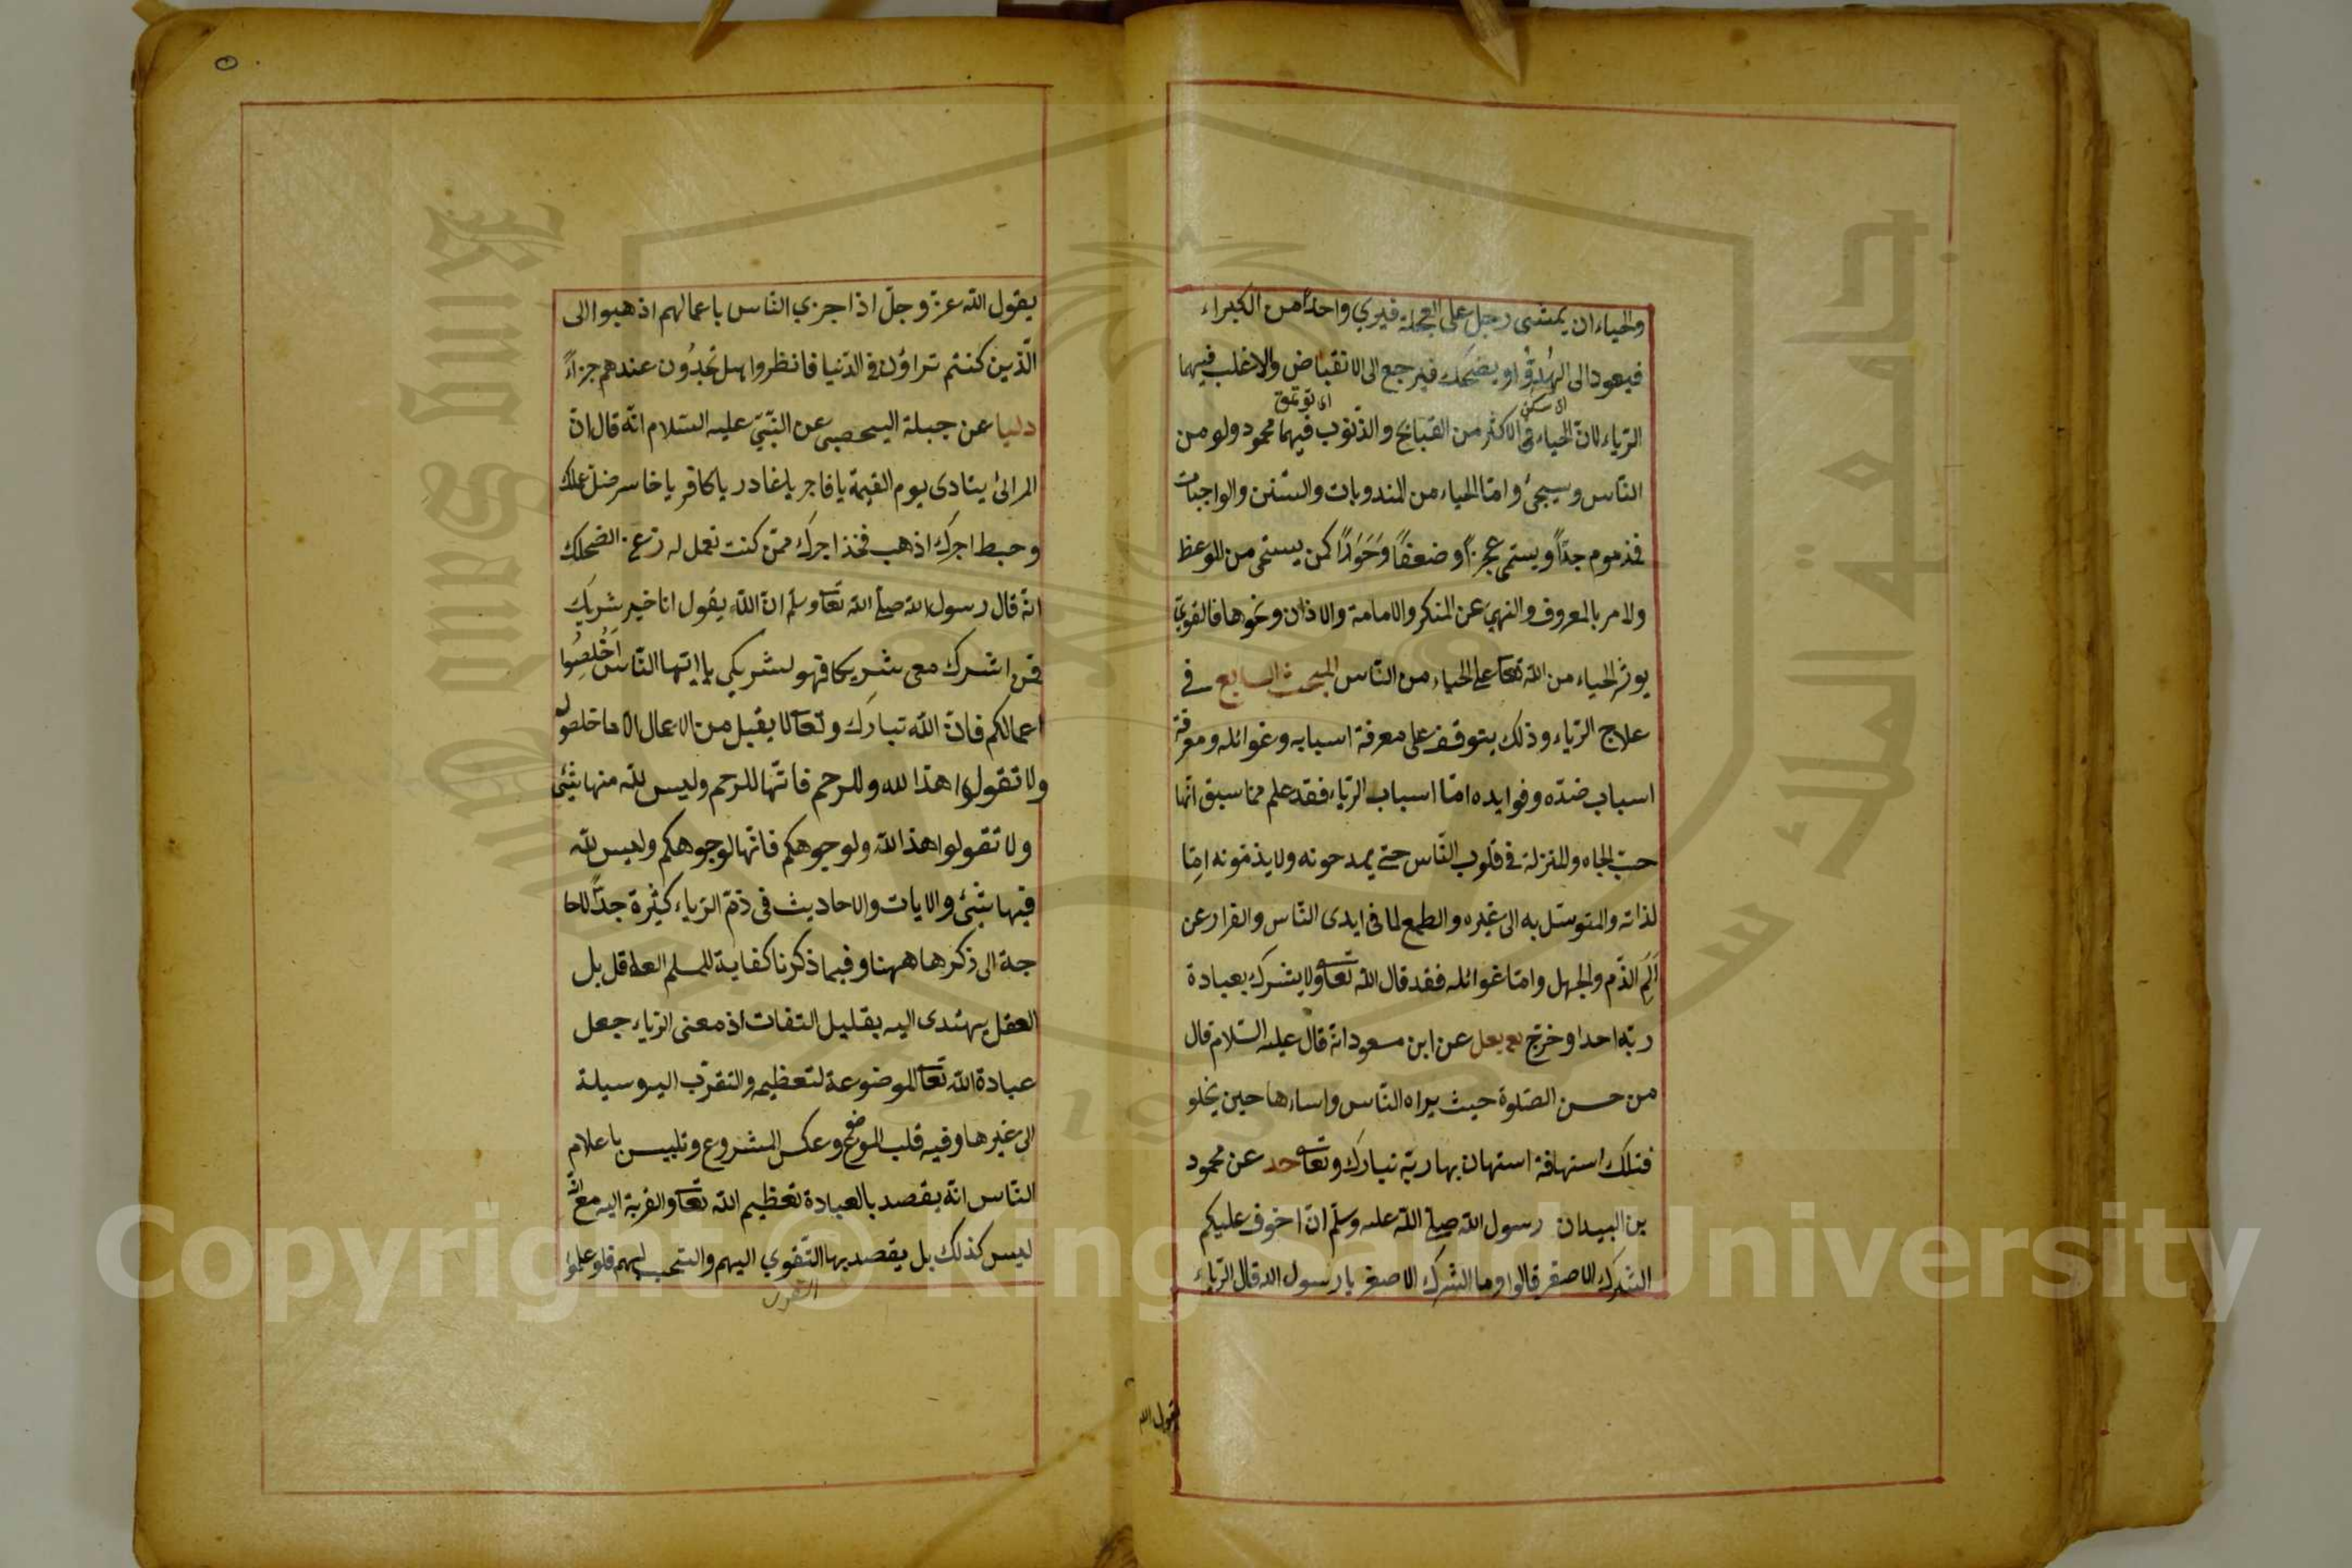 والحياء ان يمشى رجل على العجلة فيري واحدا من الكبراء
فيعود الى الهُدُوُّ او يضحك فيرجع الى الانقباض والاغلب فيهما
اى سكن
اى توقق
الرّياء لانّ الحياء فى الاكثر من القبايح والذّنوب فيهما محمود ولو من
النّاس وسيجئ وامّا الحياء من المندوبات والسّنن والواجبات
فمذموم جدّاً ويسمّى عجزاً وضعفاً وَخَوَرًا كمن يستحى من الوعظ
ولامر بالمعروف والنهي عن المنكر والامامة والاذان ونحوها فالقويّ
يوثر الحياء من الله تعا على الحياء من النّاس المبحث السابع فى
علاج الرّياء وذلك يتوقف على معرفة اسبابه وغوائله ومعرفة
اسباب ضدّه وفوايده امّا اسباب الرّياء فقد علم ممّا سبق انّها
حبّ الجاه والمنزلة فى قلوب النّاس حتى يمدحونه ولا يذمّونه امِا
لذاته والمتوسّل به الى غيره والطمع لما فى ايدى النّاس والفرار عن
اَلَمِ الذّم والجهل وامّا غوائله فقد قال الله تعا ولا يشرك بعبادة
ربّه احدا وخرّج يع يعل عن ابن مسعود انّه قال عليه السّلام قال
من حسن الصّلوة حيث يراه النّاس واساءها حين يخلو
فتلك استهانة استهان بها ربّه تبارَك وتعا حد عن محمود
بن البيدان رسول الله صلى الله عليه وسلّم انّ اخوف عليكم
الشرك الاصغر قالوا وما الشرك الاصغر يا رسول الله قال الرّياء
يقول الله
يقول الله عزّ وجلّ اذا جزي النّاس باعمالهم اذهبوا الى
الّذين كنتم تراؤن فى الدّنيا فانظروا هل تجدُون عندهم جزاءً
دنيا عن جبلة اليحصبى عن النّبيّ عليه السّلام انّه قال انّ
المرائ ينادى يوم القيمة يا فاجر يا غادر يا كافر يا خاسر ضلّ عملك
وحبط اجرك اذهب فخذ اجرك ممّن كنت تعمل له زغ عن الضحاك
انّه قال رسول الله صلى الله تعا وسلّم انّ الله يقول انا خير شريك
فمن اشرك معى شريكا فهو لشريكي يا ايّها النّاس اَخْلِصُوا
اعمالكم فانّ الله تبارَك وتعا لا يقبل من الاعمال الا ما خلص له
ولا تقولوا هذا لله وللرحم فانّها للرحم وليس للّه منها شئ
ولا تقولوا هذا لله ولوجوهكم فانّها لوجوهكم وليس للّه
فيها شئ والايات والاحاديث فى ذمّ الرّياء كثيرة جدّاً لاحا
جة الى ذكرها ههنا وفيما ذكرنا كفاية للمسلم العاقل بل
العقل يهتدى اليه بقليل التفات اذ معنى الرّياء جعل
عبادة الله تعا الموضوعة لتعظيمه والتقرّب اليه وسيلة
الى غيرها وفيه قلب الموضوع وعكس المشروع وتلبيس باعلام
النّاس انّه يقصد بالعبادة تعظيم الله تعا والقربة اليه مع انّه
ليس كذلك بل يقصد بها التّقوي اليهم والتحبب اليهم فلو علموا
التقرب